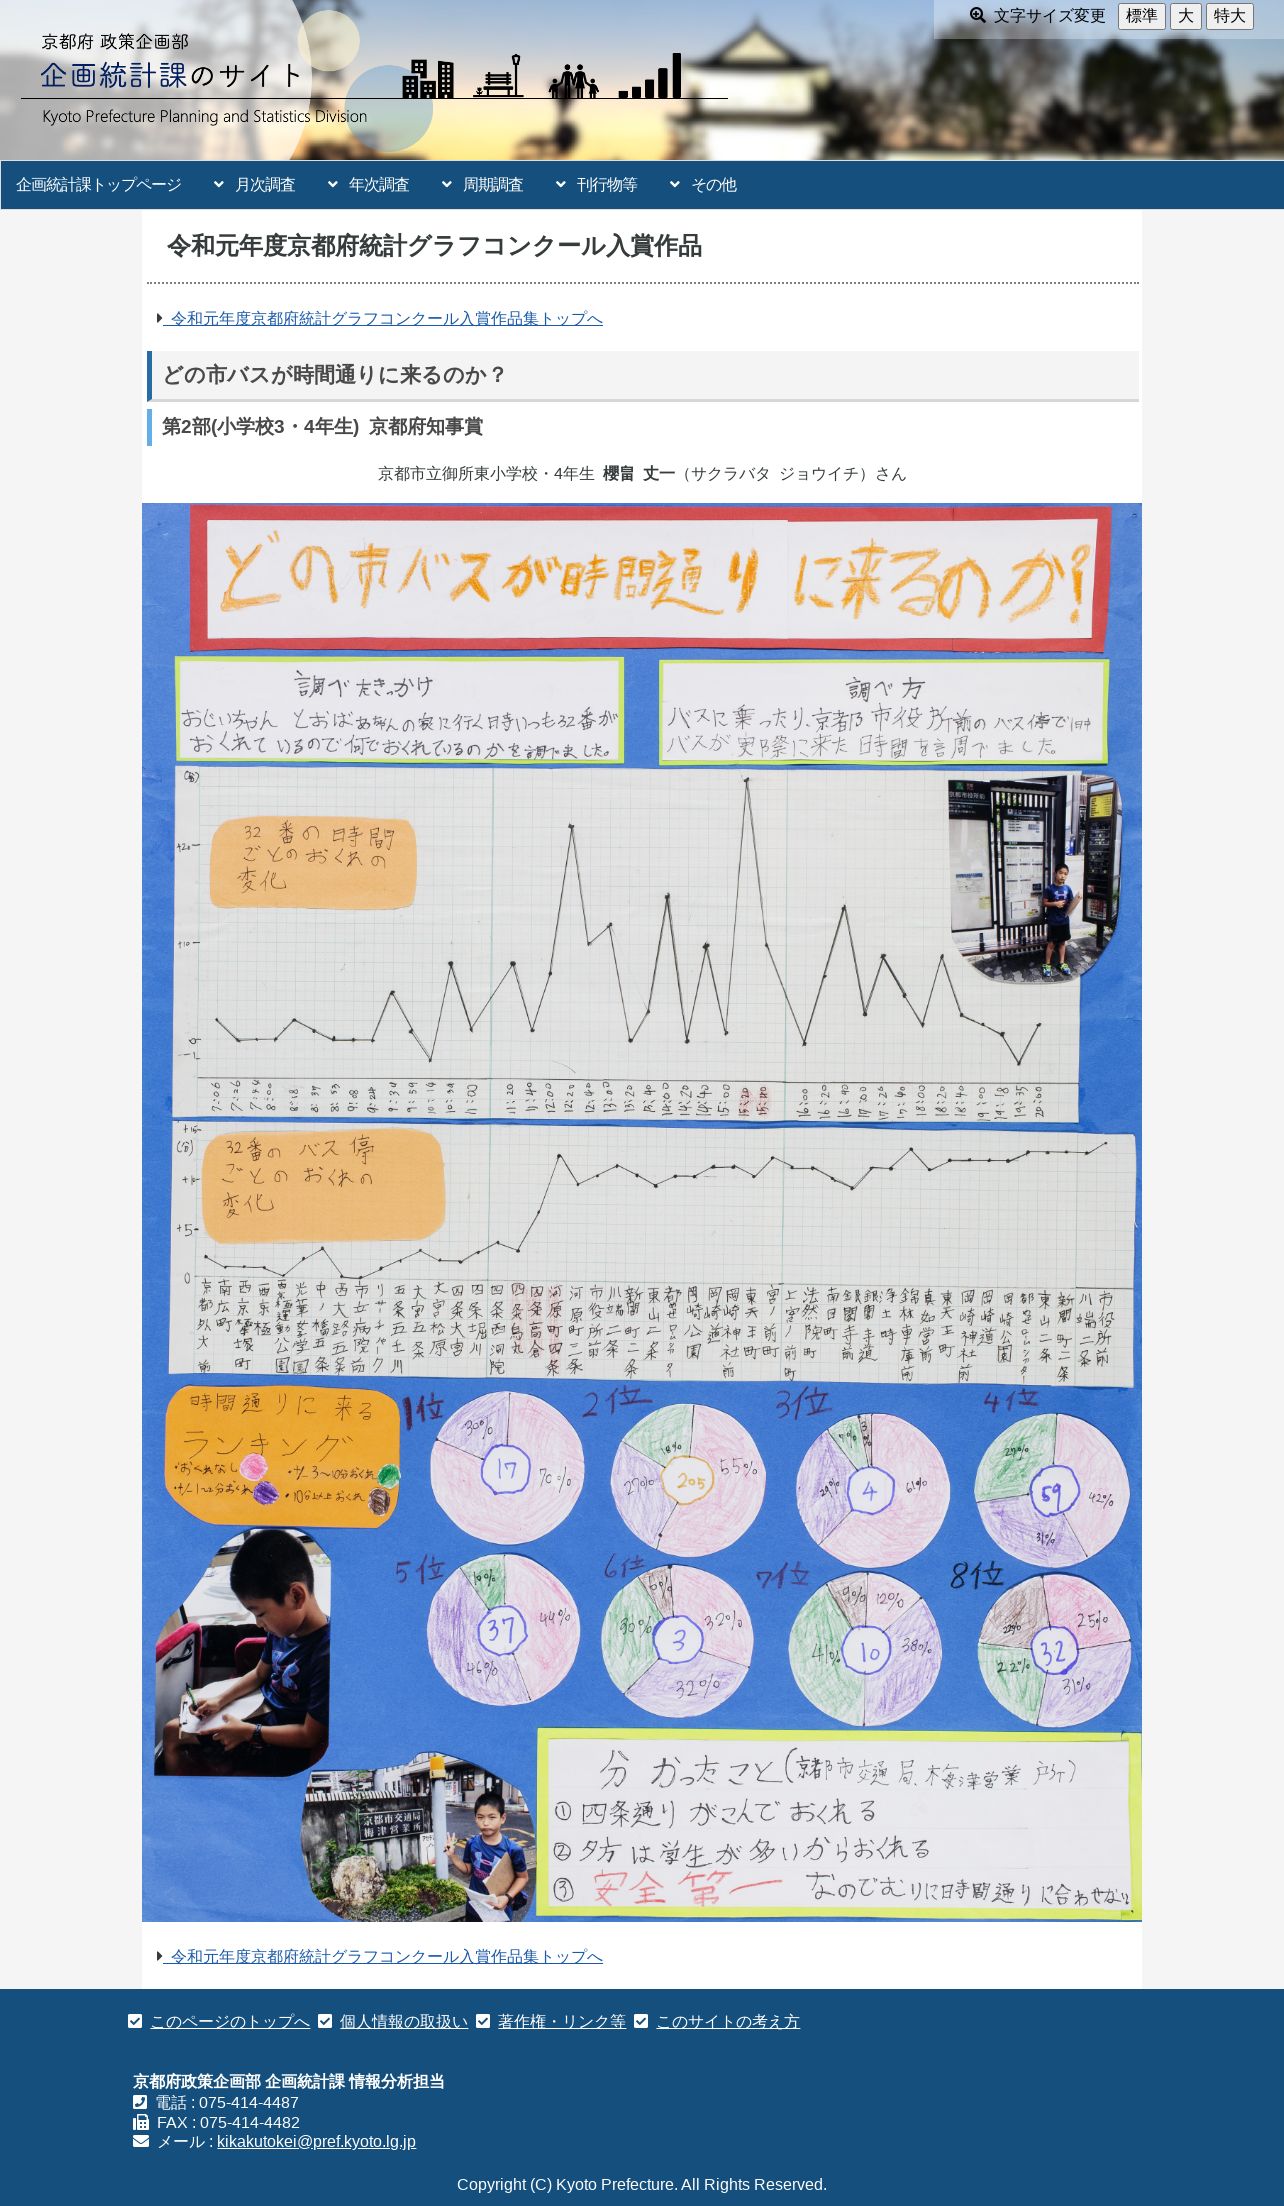 文字サイズ変更 標準 大 特大
京都府 政策企画部
企画統計課のサイト
Kyoto Prefecture Planning and Statistics Division
企画統計課トップページ 月次調査 年次調査 周期調査 刊行物等 その他
令和元年度京都府統計グラフコンクール入賞作品
令和元年度京都府統計グラフコンクール入賞作品集トップへ
どの市バスが時間通りに来るのか？
第2部(小学校3・4年生) 京都府知事賞
京都市立御所東小学校・4年生 櫻畠 丈一（サクラバタ ジョウイチ）さん
どの市バスが時間通りに来るのか!
調べたきっかけ
おじいちゃんとおばあちゃんの家に行く時いつも32番が
おくれているので何でおくれているのかを調べました。
調べ方
バスに乗ったり、京都市役所前のバス停で
バスが実際に来た時間を調べました。
(分)
32番の時間
ごとのおくれの
変化
+20
+10
0
7:06 7:26 7:44 8:00 8:18 8:37 8:53 9:08 9:24 9:34 9:59 10:14 10:39 11:00 11:20 11:40 12:00 12:20 12:40 13:00 13:20 13:40 14:00 14:20 14:40 15:00 15:20 15:40 16:00 16:20 16:40 17:00 17:20 17:40 18:00 18:20 18:40 19:00 19:18 19:35 20:00
+15
(分)
32番のバス停
ごとのおくれの
変化
+10
+5
0
時間通りに来る
ランキング
・おくれなし
・+/-1~2分おくれ
・+/-3~10分おくれ
・10分以上おくれ
1位 17 30% 70%
2位 205 18% 55% 27%
3位 4 7% 3% 61% 29%
4位 59 27% 42% 31%
5位 37 10% 44% 46%
6位 3 6% 30% 32% 32%
7位 10 9% 12% 38% 41%
8位 32 22% 25% 31% 22%
京都市交通局
梅津営業所
分かったこと(京都市交通局、梅津営業所)
① 四条通りがこんでおくれる
② 夕方は学生が多いからおくれる
③ 安全第一なのでむりに時間通りに合わせない
令和元年度京都府統計グラフコンクール入賞作品集トップへ
このページのトップへ 個人情報の取扱い 著作権・リンク等 このサイトの考え方
京都府政策企画部 企画統計課 情報分析担当
電話 : 075-414-4487
FAX : 075-414-4482
メール : kikakutokei@pref.kyoto.lg.jp
Copyright (C) Kyoto Prefecture. All Rights Reserved.